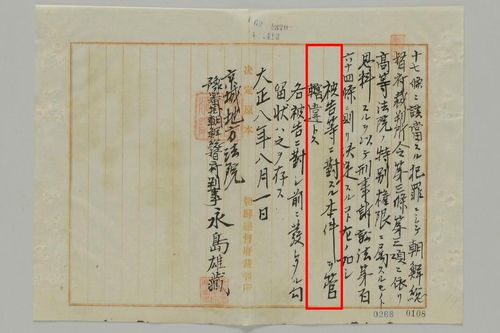 十七條ニ該當スル犯罪ニシテ朝鮮總
督府裁判所令第三條第三項ニ依リ
高等法院ノ特別權限ニ屬スルモノト
思料スルヲ以テ刑事訴訟法第百
六十四條ニ則リ決定スルコト左ノ如シ
被告等ニ對スル本件ヲ管
轄違トス
各被告ニ對シ前ニ發シタル勾
留狀ハ之ヲ存ス
大正八年八月一日
決定原本
朝鮮總督府裁判所
京城地方法院
豫審掛朝鮮總督府判事 永島雄藏
0268 0108